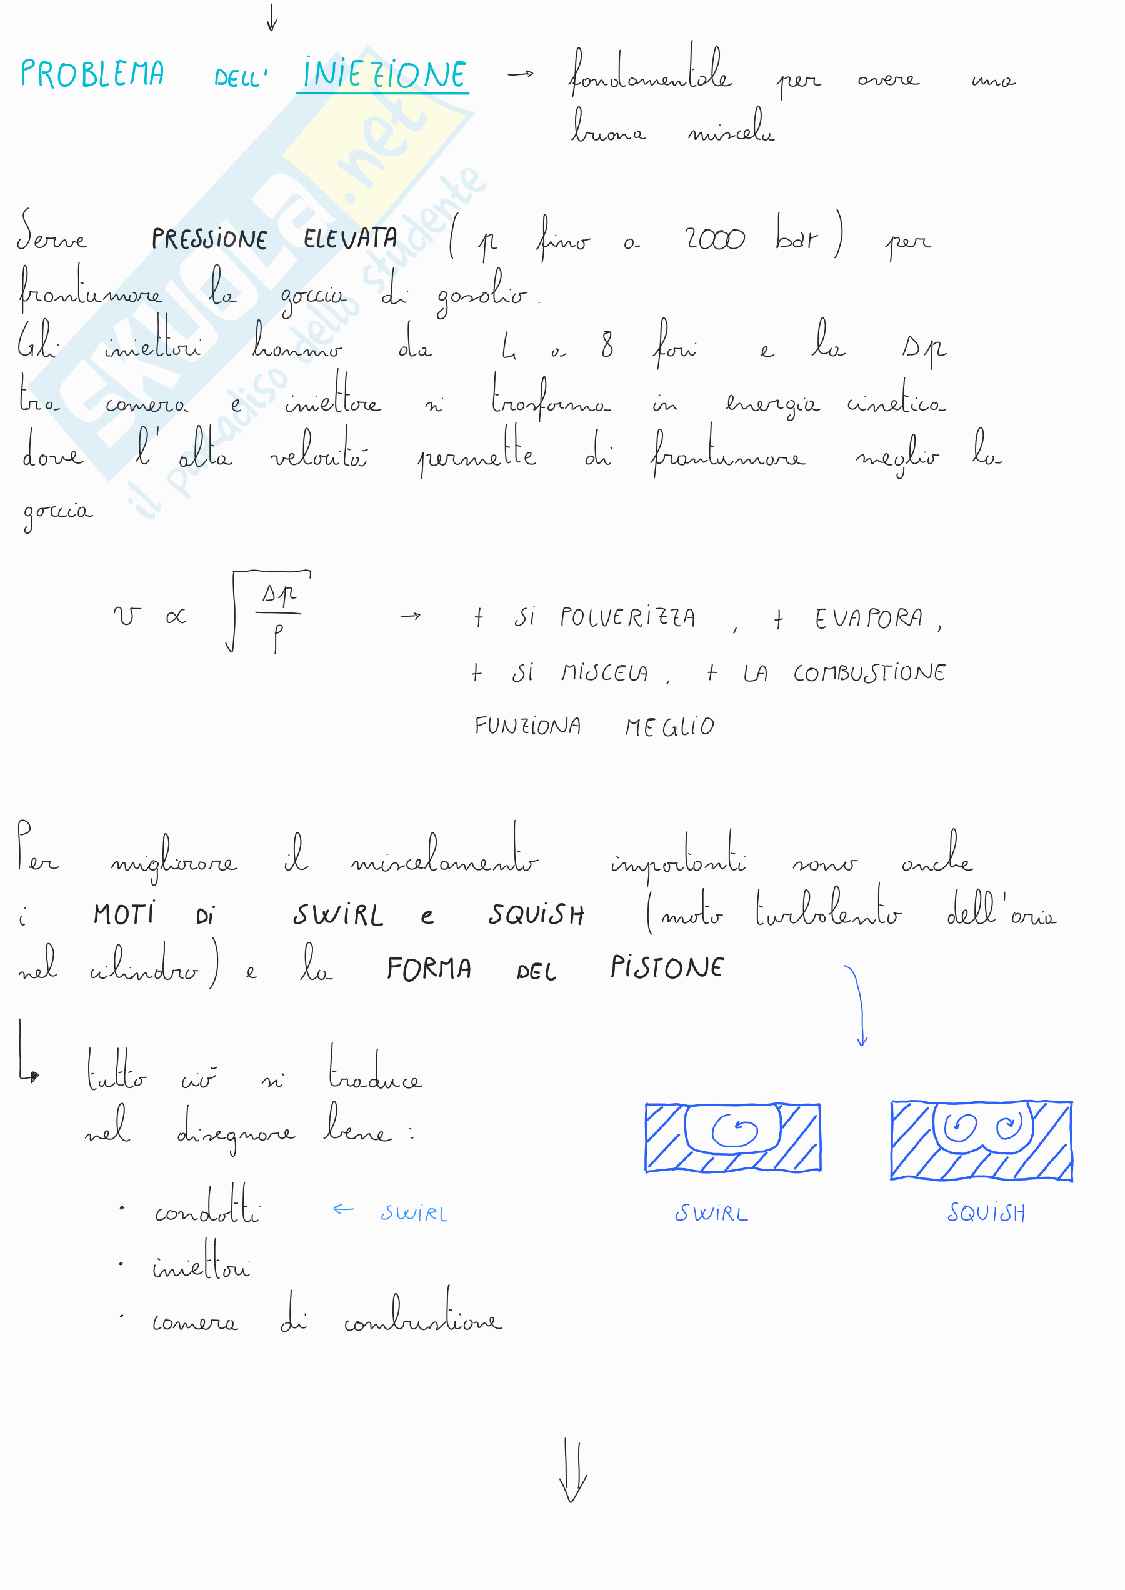 ↓
PROBLEMA DELL' INIEZIONE → fondamentale per avere una
buona miscela
Serve PRESSIONE ELEVATA ( p fino a 2000 bar ) per
frantumare la goccia di gasolio.
Gli iniettori hanno da 4 a 8 fori e la Δp
tra camera e iniettore si trasforma in energia cinetica
dove l'alta velocità permette di frantumare meglio la
goccia
v ∝ √(Δp/ρ) → + SI POLVERIZZA , + EVAPORA ,
+ SI MISCELA , + LA COMBUSTIONE
FUNZIONA MEGLIO
Per migliorare il miscelamento importanti sono anche
i MOTI DI SWIRL e SQUISH (moto turbolento dell'aria
nel cilindro) e la FORMA DEL PISTONE
↳ tutto ciò si traduce
nel disegnare bene :
· condotti ← SWIRL
SWIRL SQUISH
· iniettori
· camera di combustione
⇓
SKUOLA.net
il paradiso dello studente